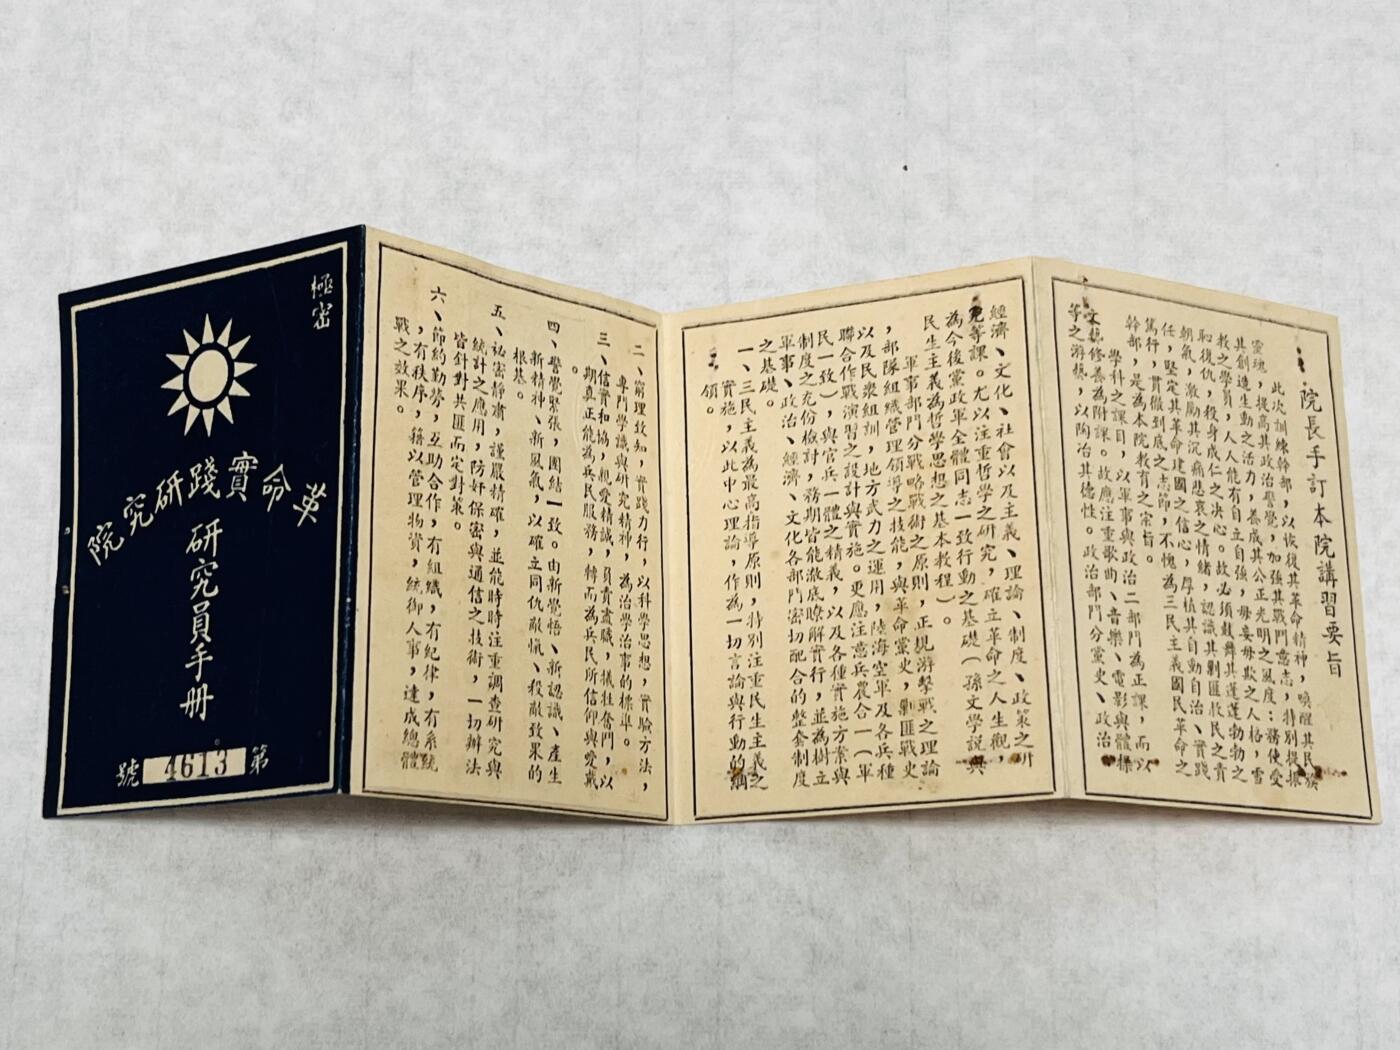 極密
革命實踐研究院
研究員手册
第4613號
院長手訂本院講習要旨
此次訓練幹部，以恢後其革命精神，喚醒其民族
靈魂，提高其政治警覺，加強其戰鬥意志，特別提振
其創造生動之活力，養成其公正光明之風度：務使受
教之學員，人人能有自立自強，毋妄毋欺之人格，雪
恥復仇，殺身成仁之决心。故必須鼓舞其蓬蓬勃勃之
朝氣，激勵其沉痛悲哀之情緒，認識其剿匪救民之責
任，堅定其革命建國之信心，厚植其自動自治、實踐
篤行，貫徹到底之志節，不愧為三民主義國民革命之
幹部，是為本院教育之宗旨。
學科之課目，以軍事與政治二部門為正課，而以
文藝修養為附課。故應注重歌曲、音樂、電影與體操
等之游藝，以陶冶其德性。政治部門分黨史、政治
經濟、文化、社會以及主義、理論、制度、政策之研
究等課。尤以注重哲學之研究，確立革命之人生觀，
為今後黨政軍全體同志一致行動之基礎（孫文學說與
民生主義為哲學思想之基本教程）。
軍事部門分戰略戰術之原則，正規游擊戰之理論
，部隊組織管理領導之技能，與革命黨史，剿匪戰史
以及民衆組訓，地方武力之運用，陸海空軍及各兵種
聯合作戰演習之設計與實施。更應注意兵農合一（軍
民一致），與官兵一體之精義，以及各種實施方案與
制度之充份檢討，務期皆能澈底瞭解實行，並為樹立
軍事、政治、經濟、文化各部門密切配合的整套制度
之基礎。
一、三民主義為最高指導原則，特別注重民生主義之
實施，以此中心理論，作為一切言論與行動的綱
領。
二、窮理致知，實踐力行，以科學思想，實驗方法，
專門學識與研究精神，為治學治事的標準。
三、信實和協，親愛精誠，負責盡職，犧牲奮鬥，以
期真正能為兵民服務，轉而為兵民所信仰與愛戴
。
四、警覺緊張，團結一致。由新覺悟、新認識、產生
新精神、新風氣，以確立同仇敵愾、殺敵致果的
根基。
五、祕密靜肅，謹嚴精確，並能時時注重調查研究與
統計之應用，防奸保密與通信之技術，一切辦法
皆針對共匪而定對策。
六、節約勤勞，互助合作，有組織，有紀律，有系統
，有秩序，藉以管理物資，統御人事，達成總體
戰之效果。